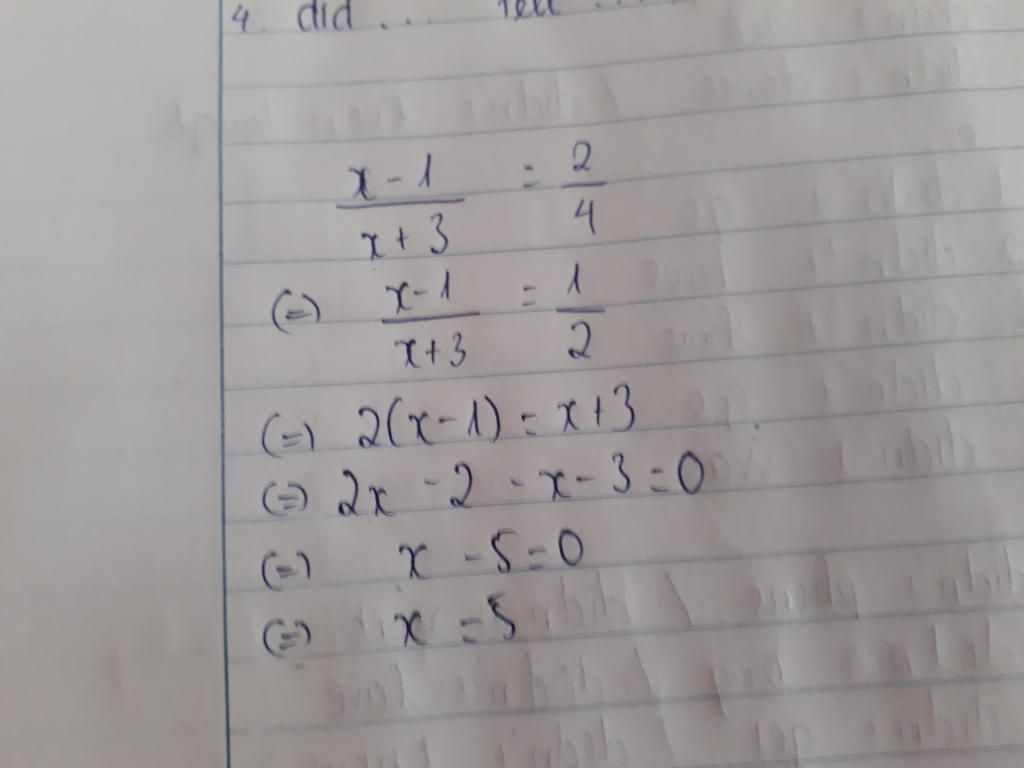 4. did ...
x - 1 / x + 3 = 2 / 4
(=) x - 1 / x + 3 = 1 / 2
(=) 2(x - 1) = x + 3
(=) 2x - 2 - x - 3 = 0
(=) x - 5 = 0
(=) x = 5